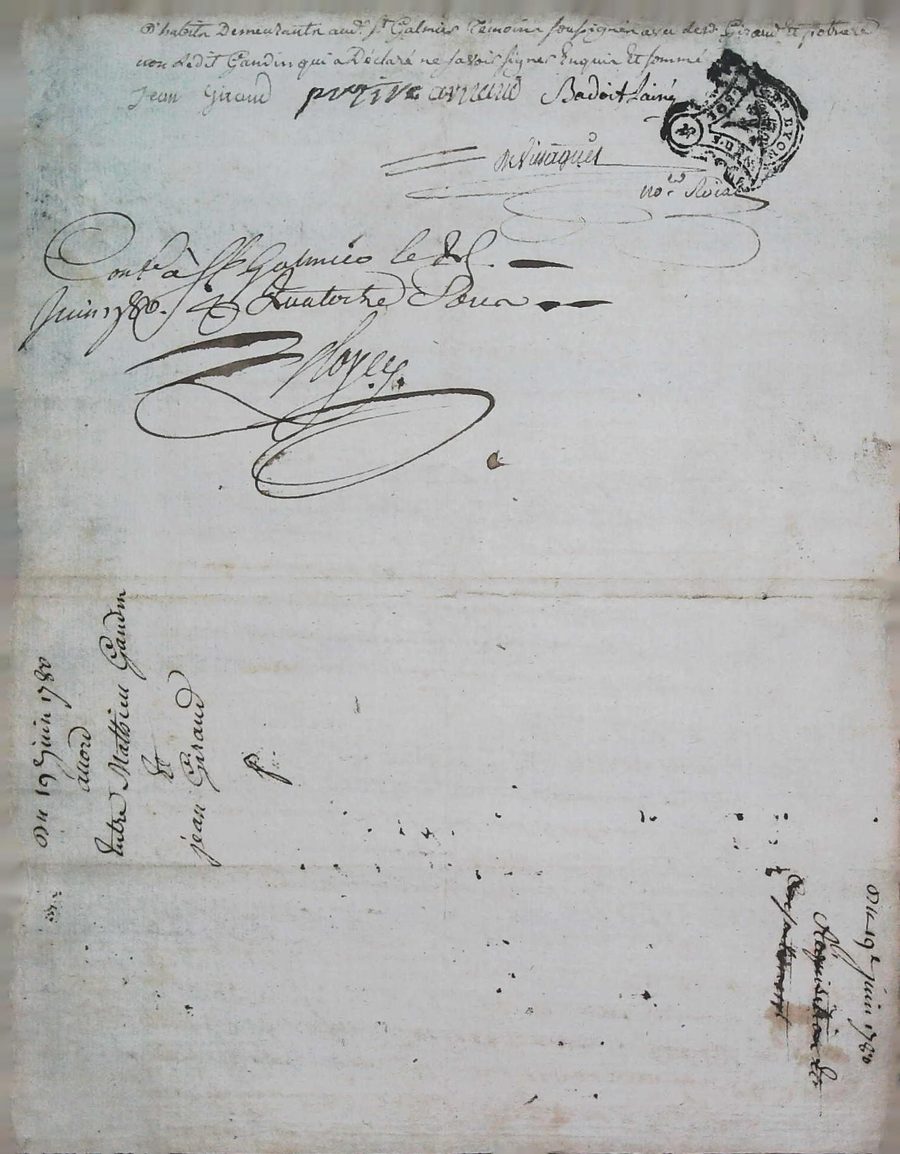 d'habits Demeurants aud. St Galmier Témoins soussignés avec led. Giraud et
non ledit Gaudin qui a Déclaré ne savoir signer Enquis Et sommé
Jean Giraud arnaud Badoit Lainé
no.re Roial
DE LYON
Contlé à St Galmier le
Juin 1780. Quatorze Sous
Royer
Du 19 juin 1780
acord
Entre Mathieu Gaudin
Et
jean Giraud
Du 19e juin 1780
Aquisition